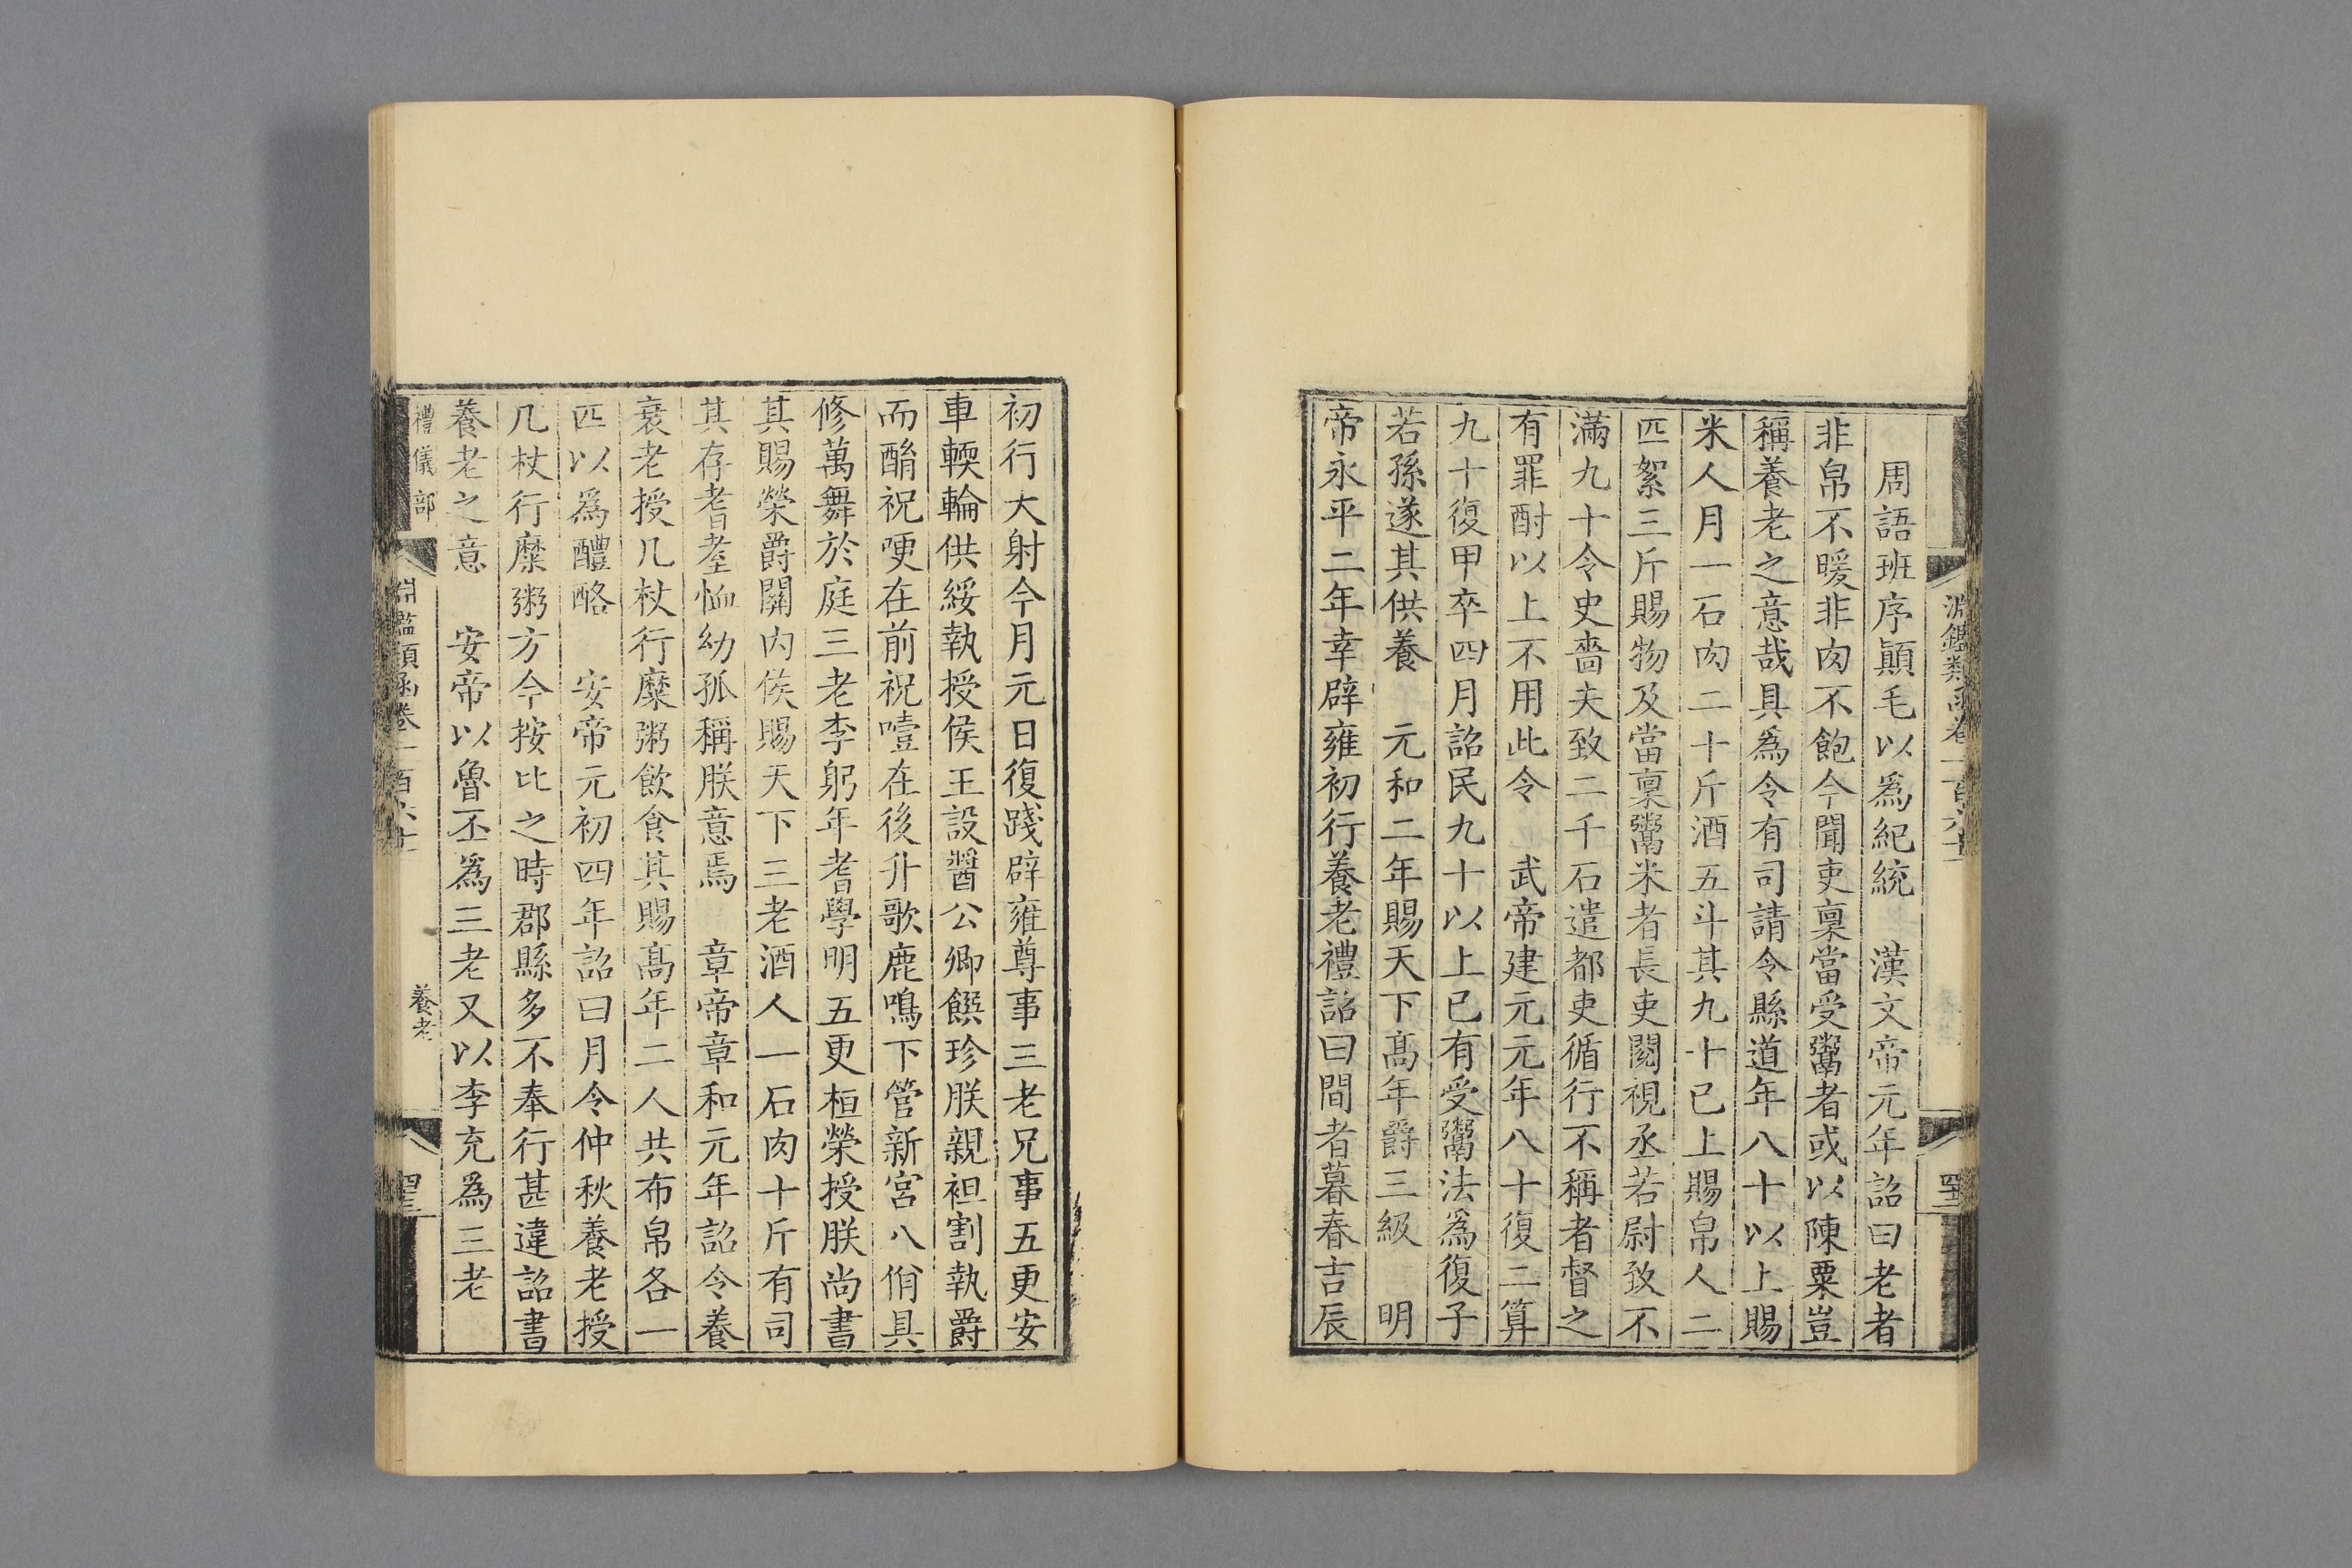 淵鑑類函卷一百六十
周語班序顚毛以爲紀統　漢文帝元年詔曰老者
非帛不暖非肉不飽今聞吏稟當受鬻者或以陳粟豈
稱養老之意哉具爲令有司請令縣道年八十以上賜
米人月一石肉二十斤酒五斗其九十已上賜帛人二
匹絮三斤賜物及當稟鬻米者長吏閱視丞若尉致不
滿九十令史嗇夫致二千石遣都吏循行不稱者督之
有罪酎以上不用此令　武帝建元元年八十復二算
九十復甲卒四月詔民九十以上已有受鬻法爲復子
若孫遂其供養　元和二年賜天下髙年爵三級　明
帝永平二年幸辟雍初行養老禮詔曰間者暮春吉辰
初行大射今月元日復踐辟雍尊事三老兄事五更安
車輭輪供綏執授侯王設醬公卿饌珍朕親袒割執爵
而酳祝哽在前祝噎在後升歌鹿鳴下管新宮八佾具
修萬舞於庭三老李躬年耆學明五更桓榮授朕尚書
其賜榮爵關内侯賜天下三老酒人一石肉十斤有司
其存耆耋恤幼孤稱朕意焉　章帝章和元年詔令養
衰老授几杖行糜粥飲食其賜髙年二人共布帛各一
匹以爲醴酪　安帝元初四年詔曰月令仲秋養老授
几杖行糜粥方今按比之時郡縣多不奉行甚違詔書
養老之意　安帝以魯丕爲三老又以李充爲三老
禮儀部
淵鑑類函卷一百六十
養老